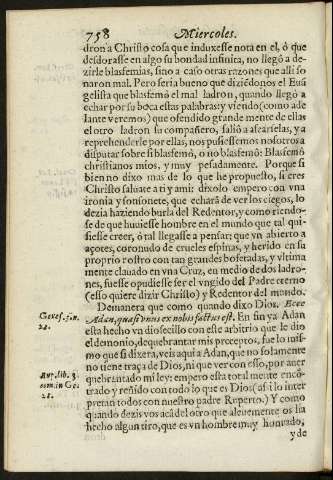 758
Miercoles.
dron a Christo cosa que induxesse nota en el, ò que
desdorasse en algo su bondad infinita, no llegó a de-
zirle blasfemias, sino a caso otras razones que alli so-
naron mal. Pero seria bueno que diziẽdonos el Euã
gelista que blasfemò el mal ladron, quando llegó a
echar por su boca estas palabras (y viendo (como ade
lante veremos) que ofendido grandemente de ellas
el otro ladron su compañero, salió a afearselas, y a
reprehenderle por ellas, nos pusiessemos nosotros a
disputar sobre si blasfemò, o no blasfemò? Blasfemò
christianos mios, y muy pesadamente. Porque si
bien no dixo mas de lo que he propuesto, si eres
Christo saluate a ti y ami: dixolo empero con vna
ironia y sonsonete, que echarà de ver los ciegos, lo
dezia haziendo burla del Redentor, y como riendo-
se de que huuiesse hombre en el mundo que tal qui-
siesse creer, ò tal llegasse a pensar; que vn abierto a
açotes, coronado de crueles espinas, y herido en su
proprio rostro con tan grandes bofetadas, y vltima
mente clauado en vna Cruz, en medio de dos ladro-
nes, fuesse opudiesse ser el vngido del Padre eterno
(esso quiere dizir Christo) y Redentor del mundo.
Demanera que como quando dixo Dios. Ecce
Adan, quasi vnus ex nobis factus est. En fin ya Adan
esta hecho vn diosecillo con este arbitrio que le dio
el demonio, de quebrantar mis preceptos, fue lo mis-
mo que si dixera, veis aqui a Adan, que no solamente
no tiene traça de Dios, ni que ver con esso, por auer
quebrantado mi ley: empero esta totalmente encõ-
trado y reñido con todo lo que es Dios (assi lo inter
pretan todos con nuestro padre Ruperto.) Y como
quando dezis vos acà del otro que aleuemente os ha
hecho algun tiro, que es vn hombre muy honrado,
y de
Genes. 3. n.
22.
Rup. lib. 3.
com. in Ge.